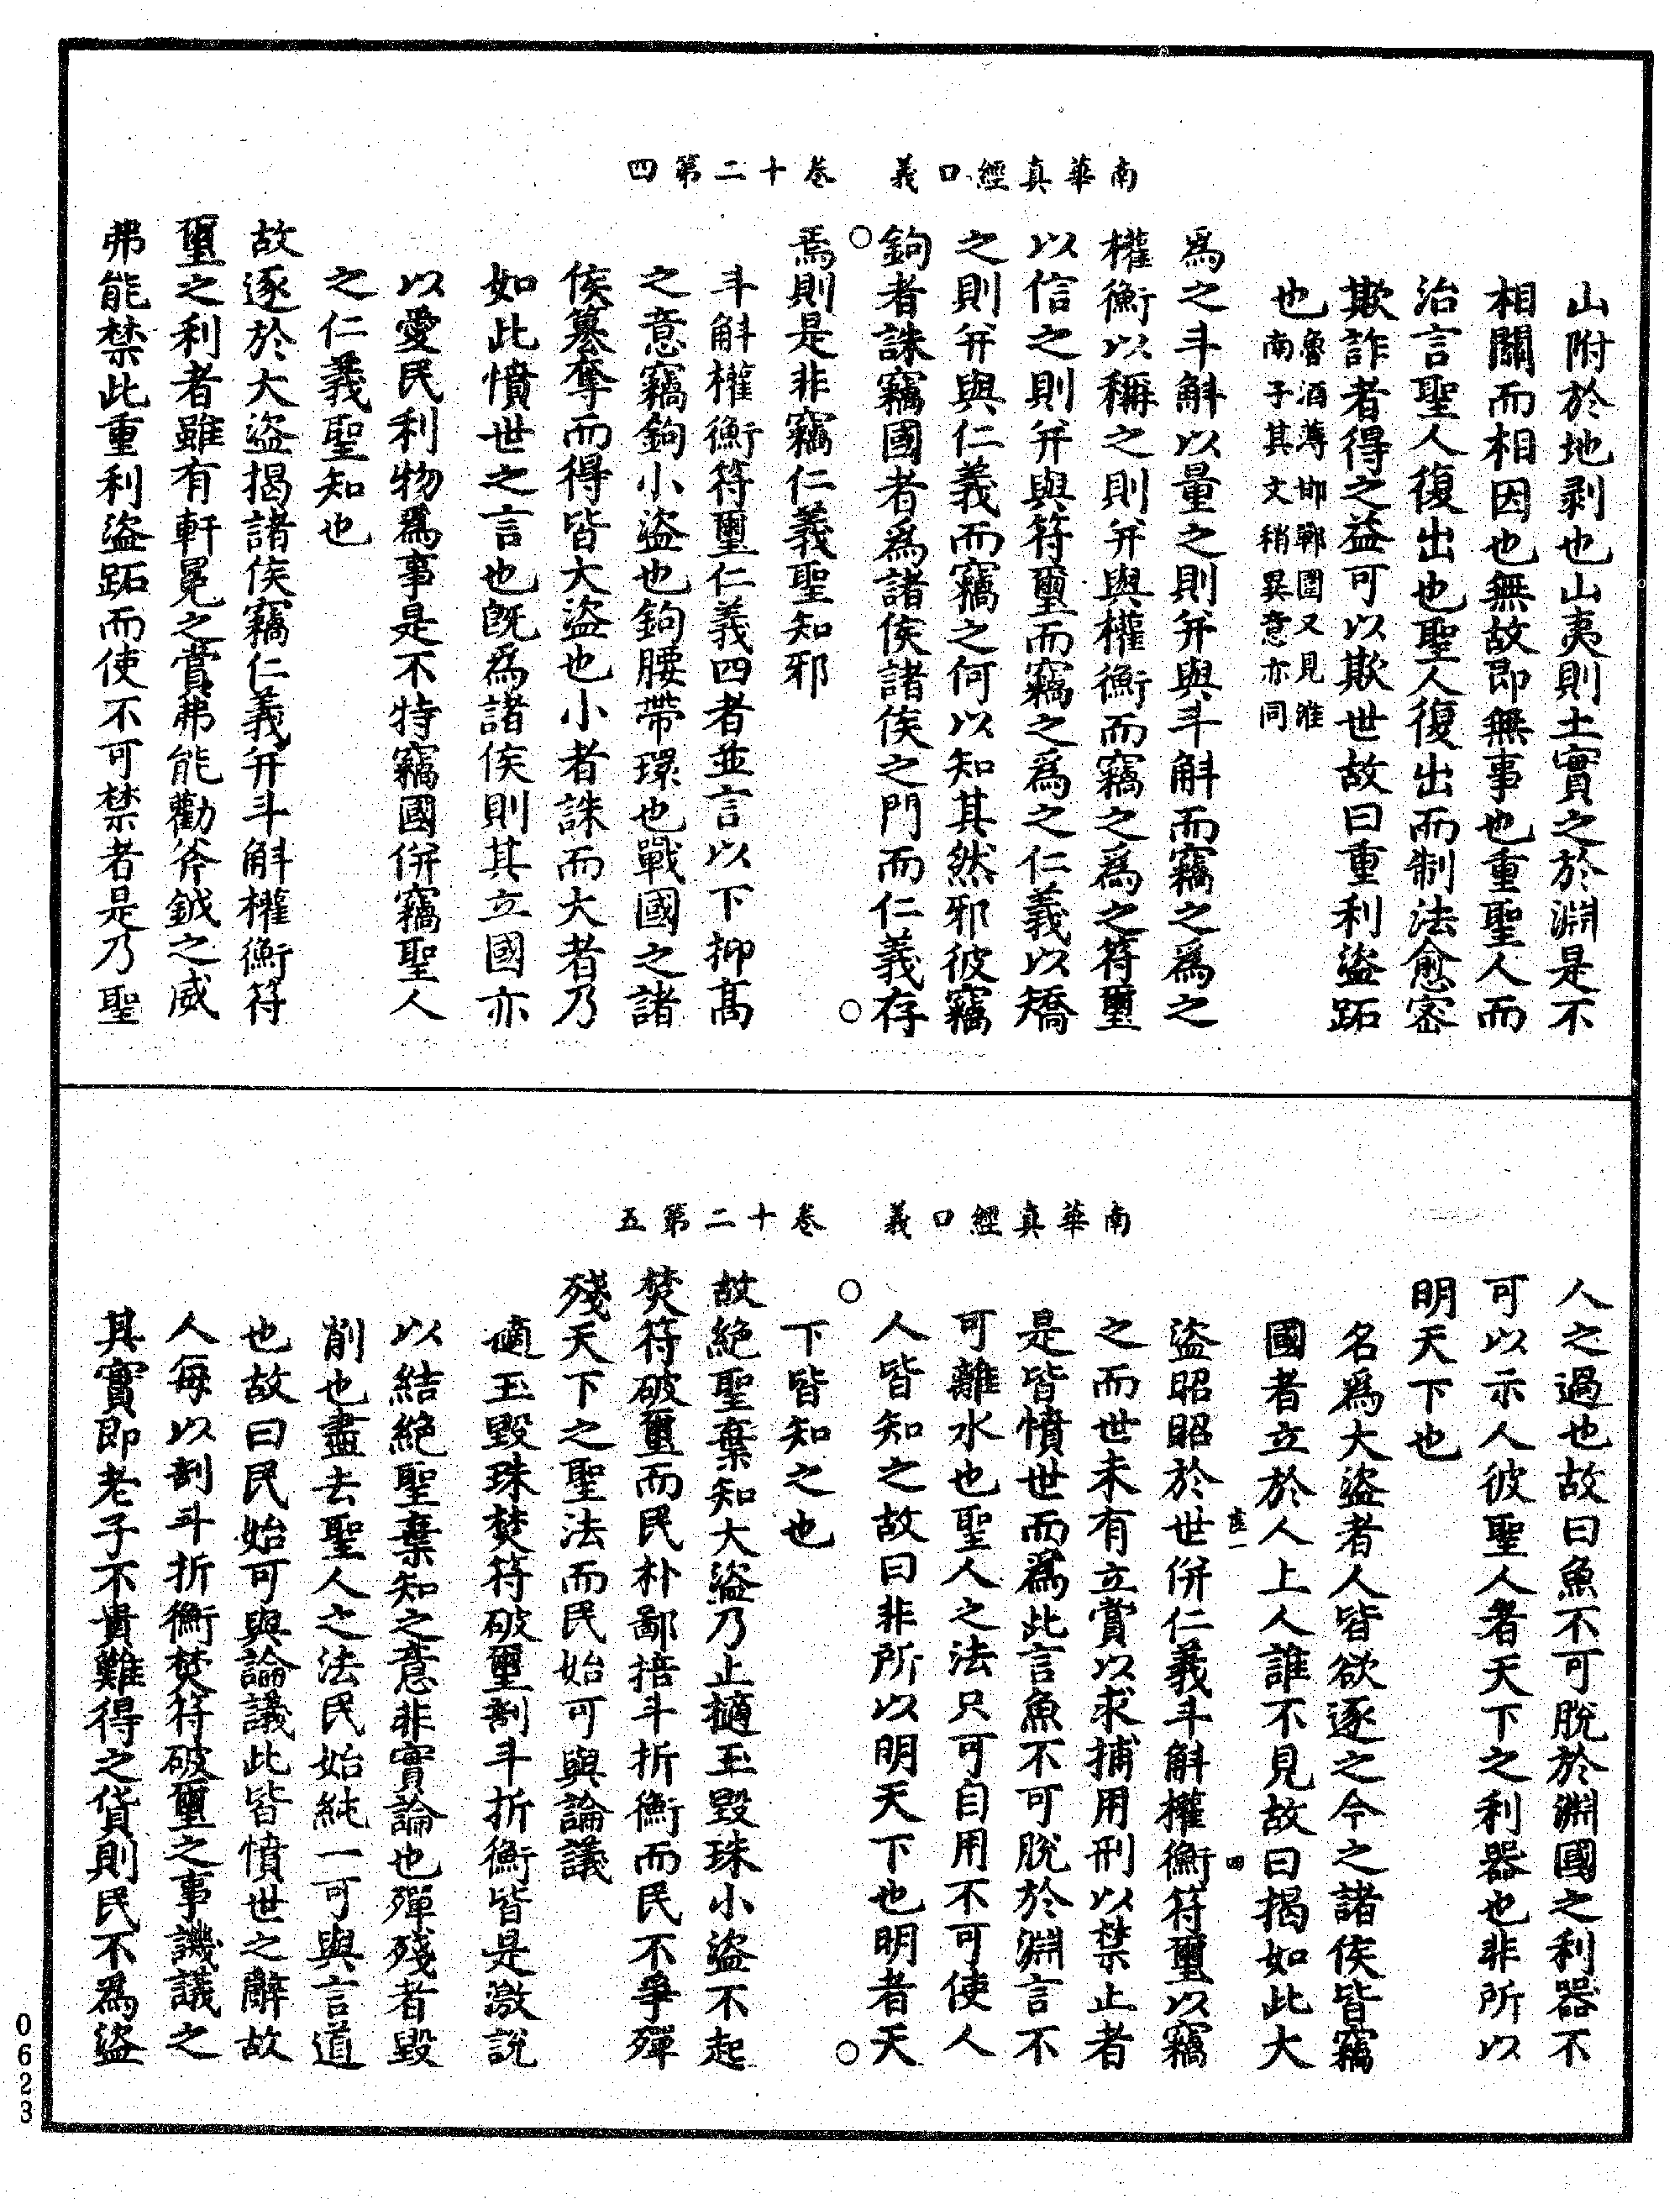 南華真經口義　卷十二第四
山附於地剥也山夷則土實之於淵是不
相關而相因也無故即無事也重聖人而
治言聖人復出也聖人復出而制法愈密
欺詐者得之益可以欺世故曰重利盜跖
也魯酒薄邯鄲圍又見淮
南子其文稍異意亦同
爲之斗斛以量之則并與斗斛而竊之爲之
權衡以稱之則并與權衡而竊之爲之符璽
以信之則并與符璽而竊之爲之仁義以矯
之則并與仁義而竊之何以知其然邪彼竊
鉤者誅竊國者爲諸侯諸侯之門而仁義存
焉則是非竊仁義聖知邪
斗斛權衡符璽仁義四者並言以下抑高
之意竊鉤小盜也鉤腰帶環也戰國之諸
侯篡奪而得皆大盜也小者誅而大者乃
如此憤世之言也既爲諸侯則其立國亦
以愛民利物爲事是不特竊國併竊聖人
之仁義聖知也
故逐於大盜揭諸侯竊仁義并斗斛權衡符
璽之利者雖有軒冕之賞弗能勸斧鉞之威
弗能禁此重利盜跖而使不可禁者是乃聖
南華真經口義　卷十二第五
人之過也故曰魚不可脫於淵國之利器不
可以示人彼聖人者天下之利器也非所以
明天下也
名爲大盜者人皆欲逐之今之諸侯皆竊
國者立於人上人誰不見故曰揭如此大
盜昭昭於世併仁義斗斛權衡符璽以竊
之而世未有立賞以求捕用刑以禁止者
是皆憤世而爲此言魚不可脫於淵言不
可離水也聖人之法只可自用不可使人
人皆知之故曰非所以明天下也明者天
下皆知之也
故絕聖棄知大盜乃止擿玉毀珠小盜不起
焚符破璽而民朴鄙掊斗折衡而民不爭殫
殘天下之聖法而民始可與論議
擿玉毀珠焚符破璽剖斗折衡皆是激說
以結絕聖棄知之意非實論也殫殘者毀
削也盡去聖人之法民始純一可與言道
也故曰民始可與論議此皆憤世之辭故
人每以剖斗折衡焚符破璽之事譏議之
其實即老子不貴難得之貨則民不爲盜
0623